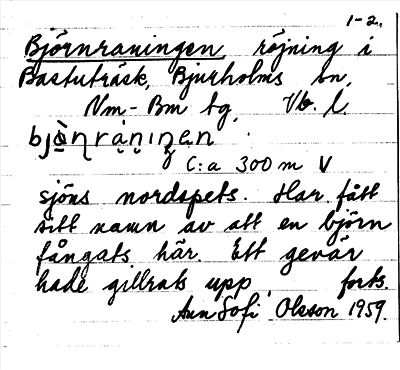 1-2.
Björnraningen röjning i
Bastuträsk, Bjurholms sn,
Nm-Bm tg, Vb. l.
C:a 300 m V
sjöns nordspets. Har fått
sitt namn av att en björn
fångats här. Ett gevär
hade gillrats upp, forts.
Ann Sofi Olsson 1959.